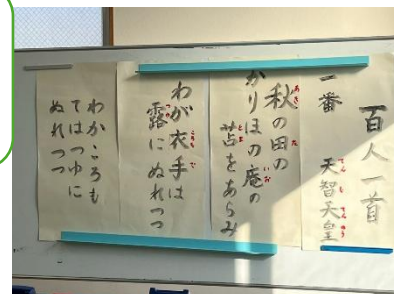 百人一首
一番　天智天皇
秋の田の
かりほの庵の
苫をあらみ
わが衣手は
露にぬれつつ
わかころも
てはつゆに
ぬれつつ